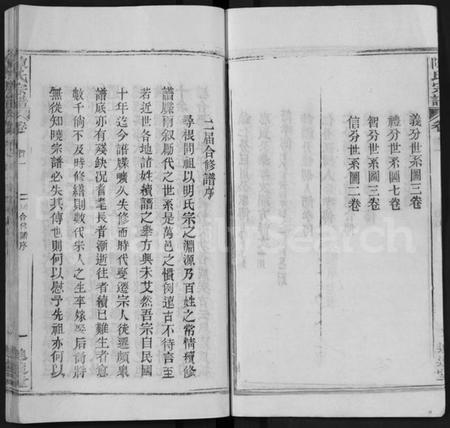 陳氏宗譜
卷
義分世系圖三卷
禮分世系圖七卷
智分世系圖三卷
信分世系圖二卷
二屆合修譜序
尋根問祖以明氏宗之淵源乃百姓之常情續修
譜牒而叙勵代之世系是萬邑之慣例遠古不待言至
若近世各地諸姓續譜之舉方興未艾然吾宗自民國
十年迄今譜牒曠久失修而時代變遷宗人徙遷頗衆
譜底亦有殘缺况者耄長者漸逝往者續已難生者意
數千倘不及時修繕則數代宗人之生卒嫁娶后裔將
無從知曉宗譜必失其傳也則何以慰予先祖亦何以
陳氏宗譜
卷一
二屆合修譜序
一
FamilySearch